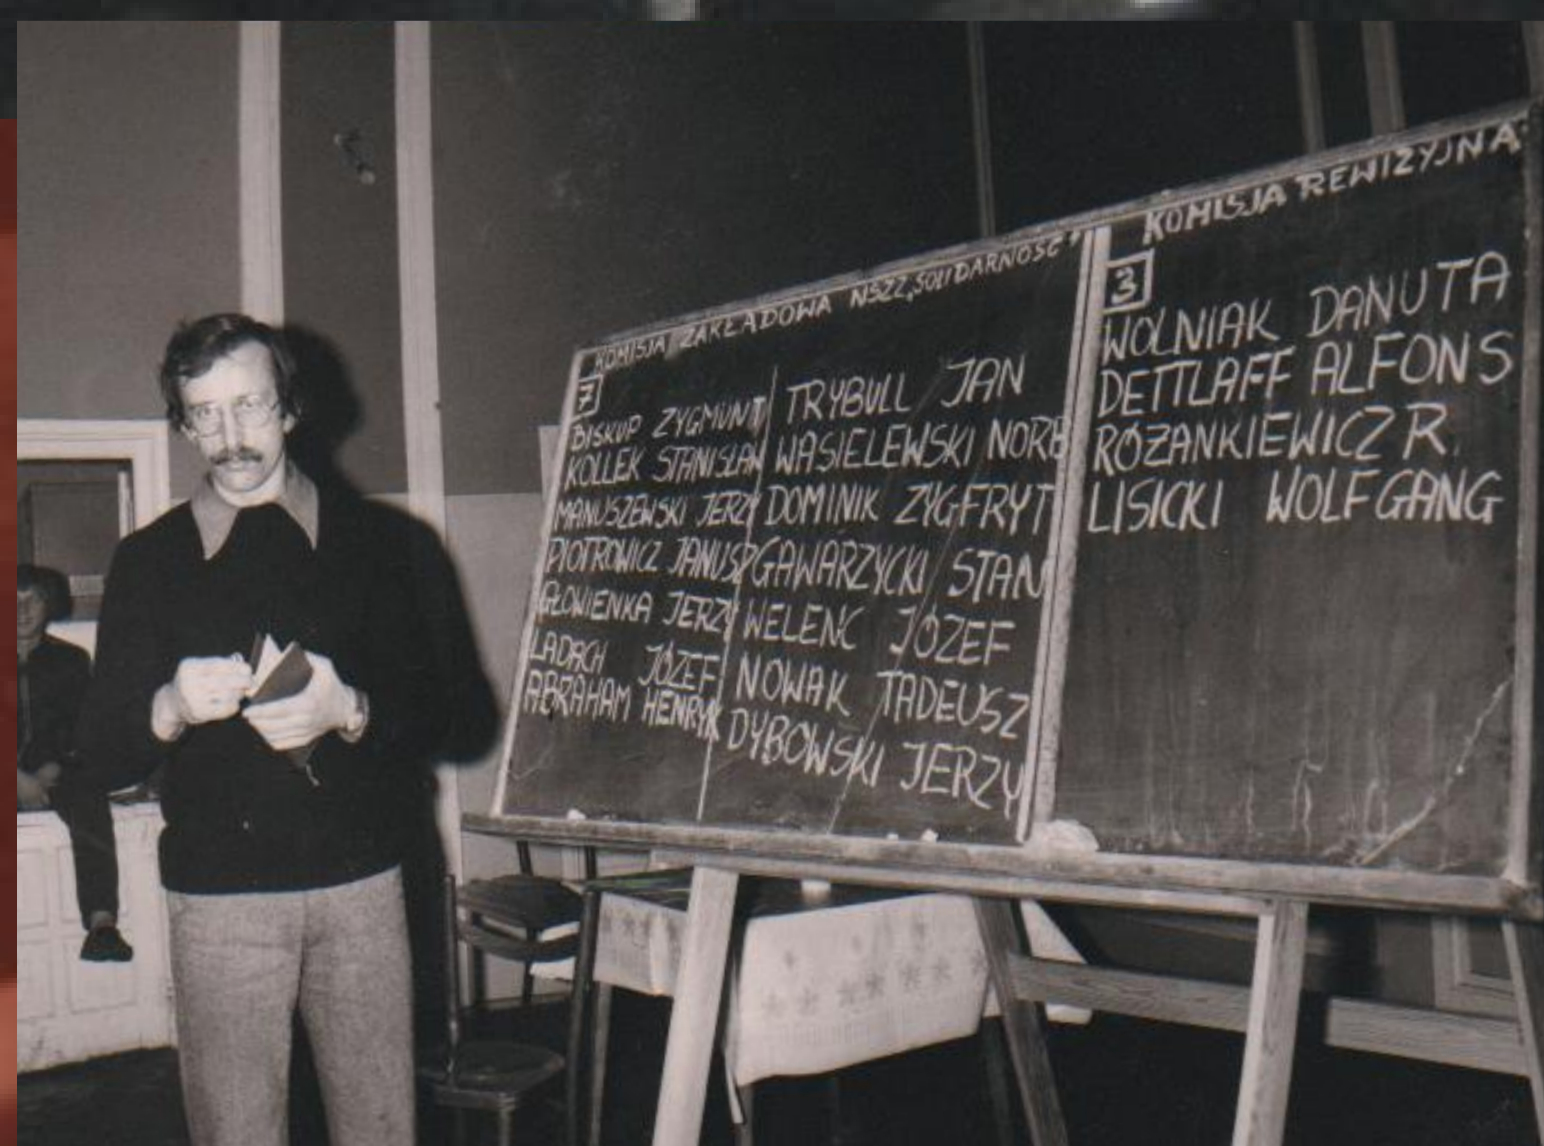 KOMISJA ZAKŁADOWA NSZZ „SOLIDARNOŚĆ"
7
BISKUP ZYGMUNT
KOLLEK STANISŁAW
MANUSZEWSKI JERZY
PIOTROWICZ JANUSZ
GŁOWIENKA JERZY
LADACH JÓZEF
ABRAHAM HENRYK
TRYBULL JAN
WASIELEWSKI NORB
DOMINIK ZYGFRYT
GAWARZYCKI STAN
WELENC JÓZEF
NOWAK TADEUSZ
DYBOWSKI JERZY
KOMISJA REWIZYJNA
3
WOLNIAK DANUTA
DETTLAFF ALFONS
RÓZANKIEWICZ R.
LISICKI WOLFGANG